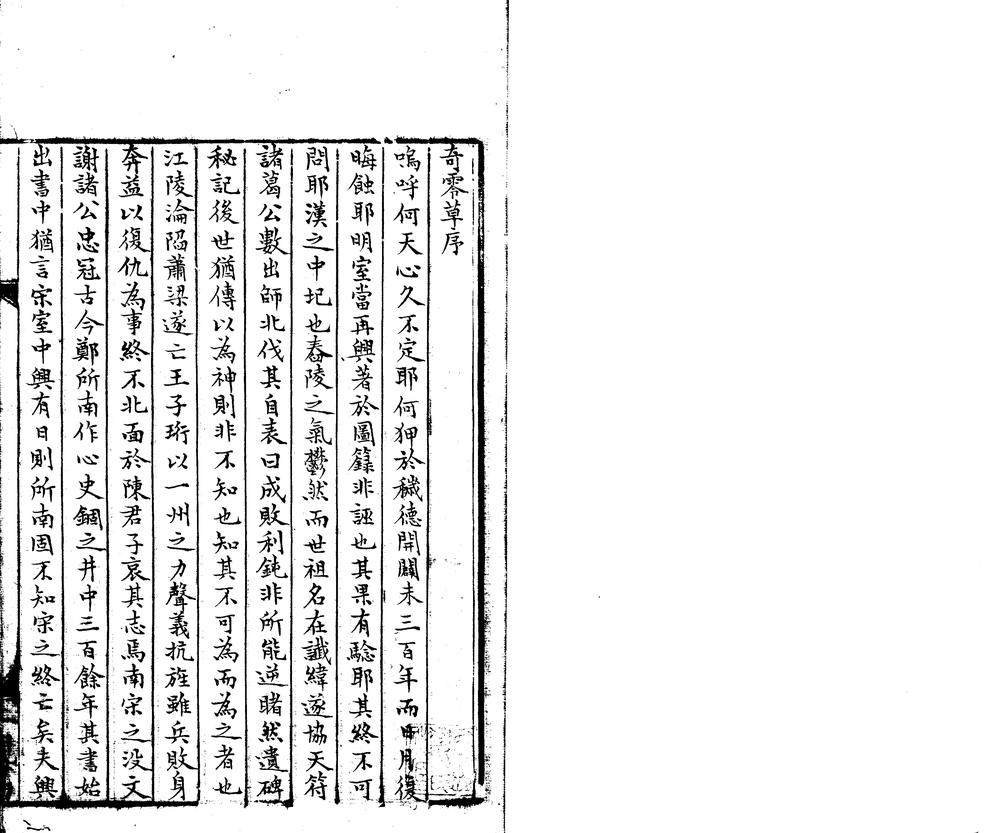 奇零草序
嗚呼何天心久不定耶何狎於穢德開闢未三百年而明月復
晦蝕耶明室當再興著於圖籙非誣也其果有驗耶其終不可
問耶漢之中圮也舂陵之氣鬱然而世祖名在讖緯遂協天符
諸葛公數出師北伐其自表曰成敗利鈍非所能逆睹然遺碑
秘記後世猶傳以為神則非不知也知其不可為而為之者也
江陵淪陷蕭梁遂亡王子珩以一州之力聲義抗旌雖兵敗身
奔益以復仇為事終不北面於陳君子哀其志焉南宋之没文
謝諸公忠冠古今鄭所南作心史錮之井中三百餘年其書始
出書中猶言宋室中興有日則所南固不知宋之終亡矣夫興